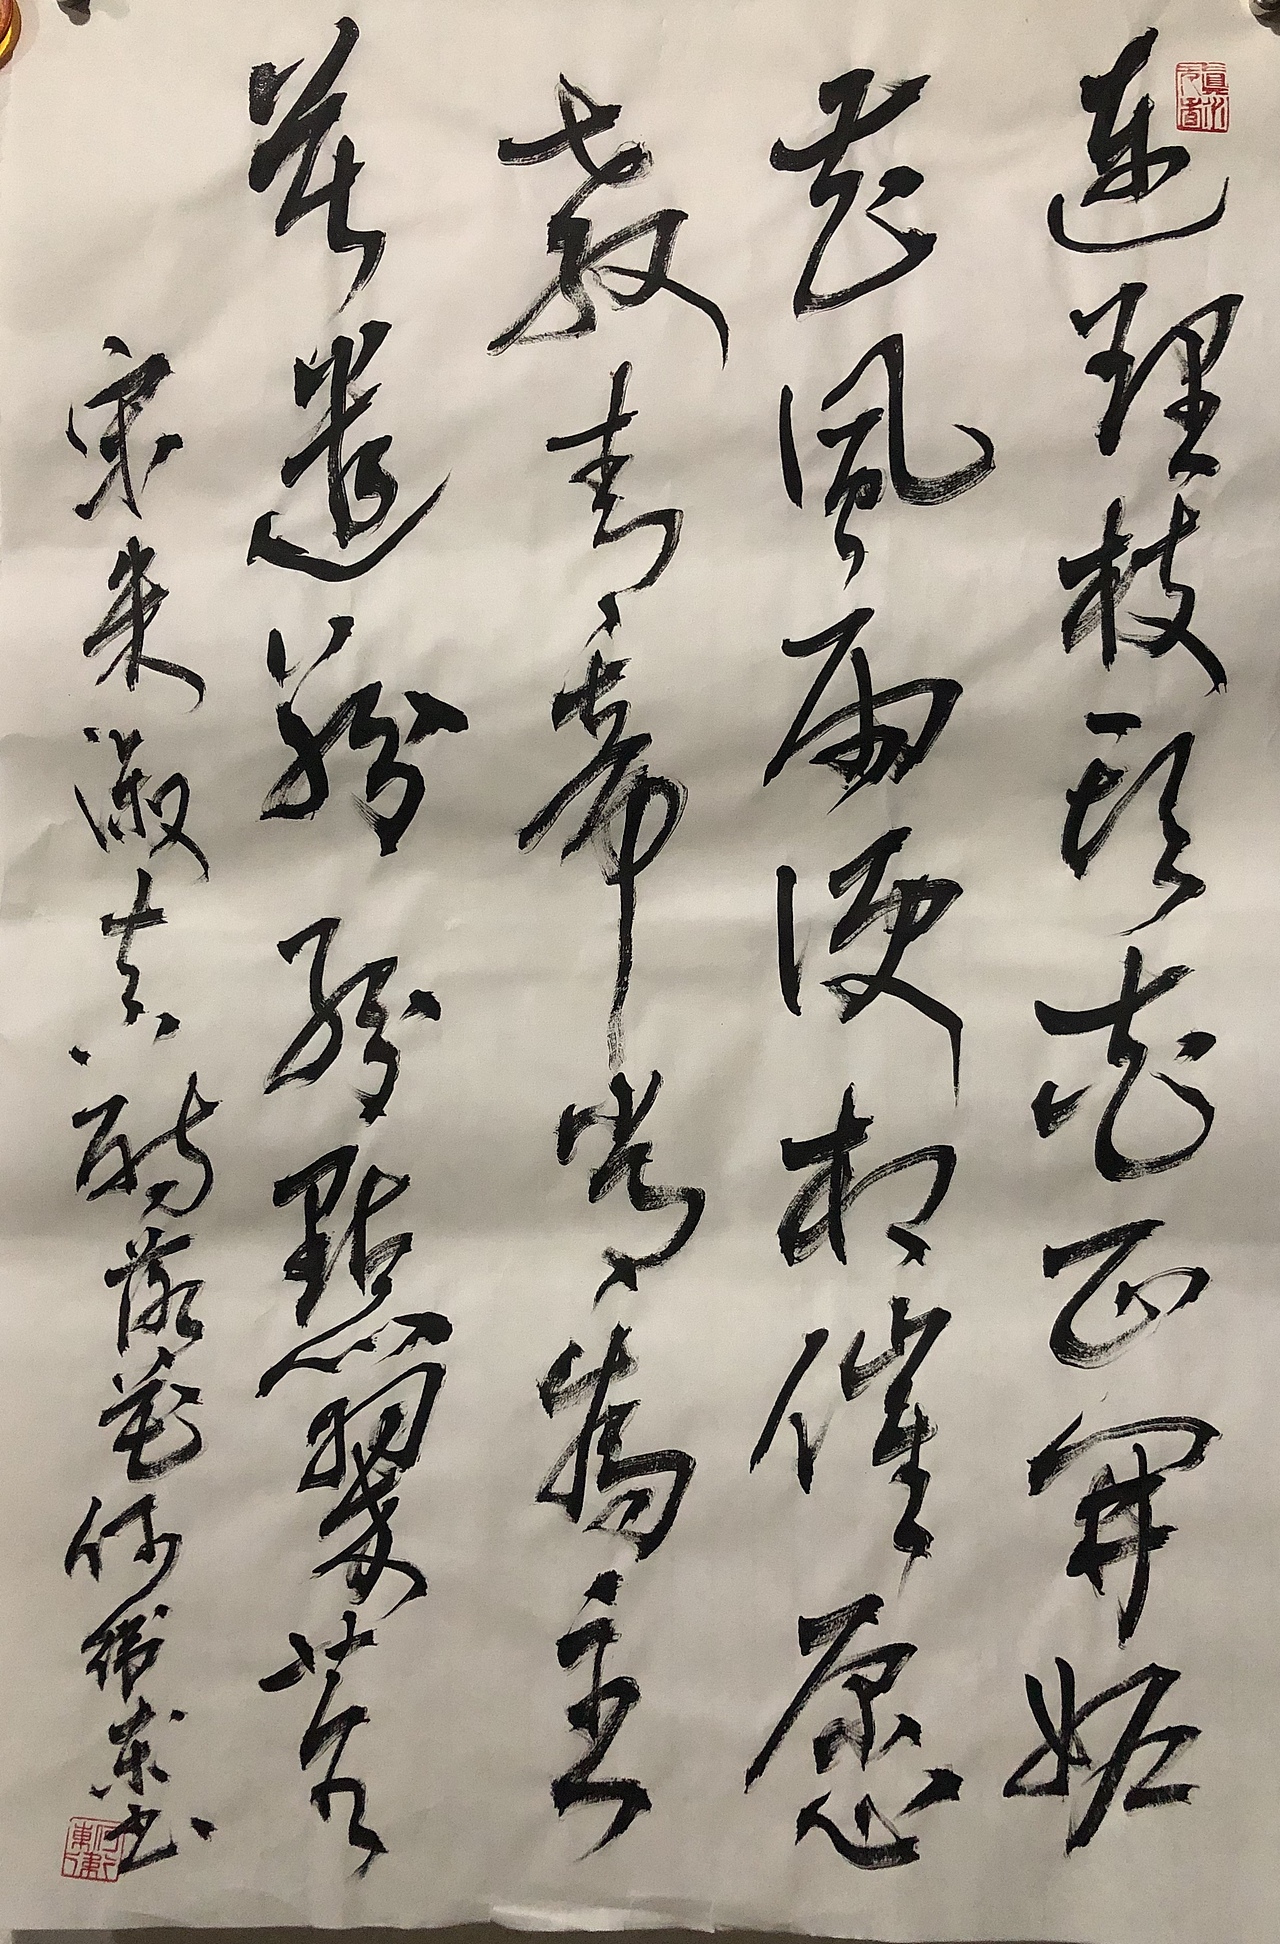 真水无香
連理枝頭花正開妒
花風雨便相催愿
教青帝常為主
莫遣紛紛點翠苔
宋朱淑真詩落花何東書